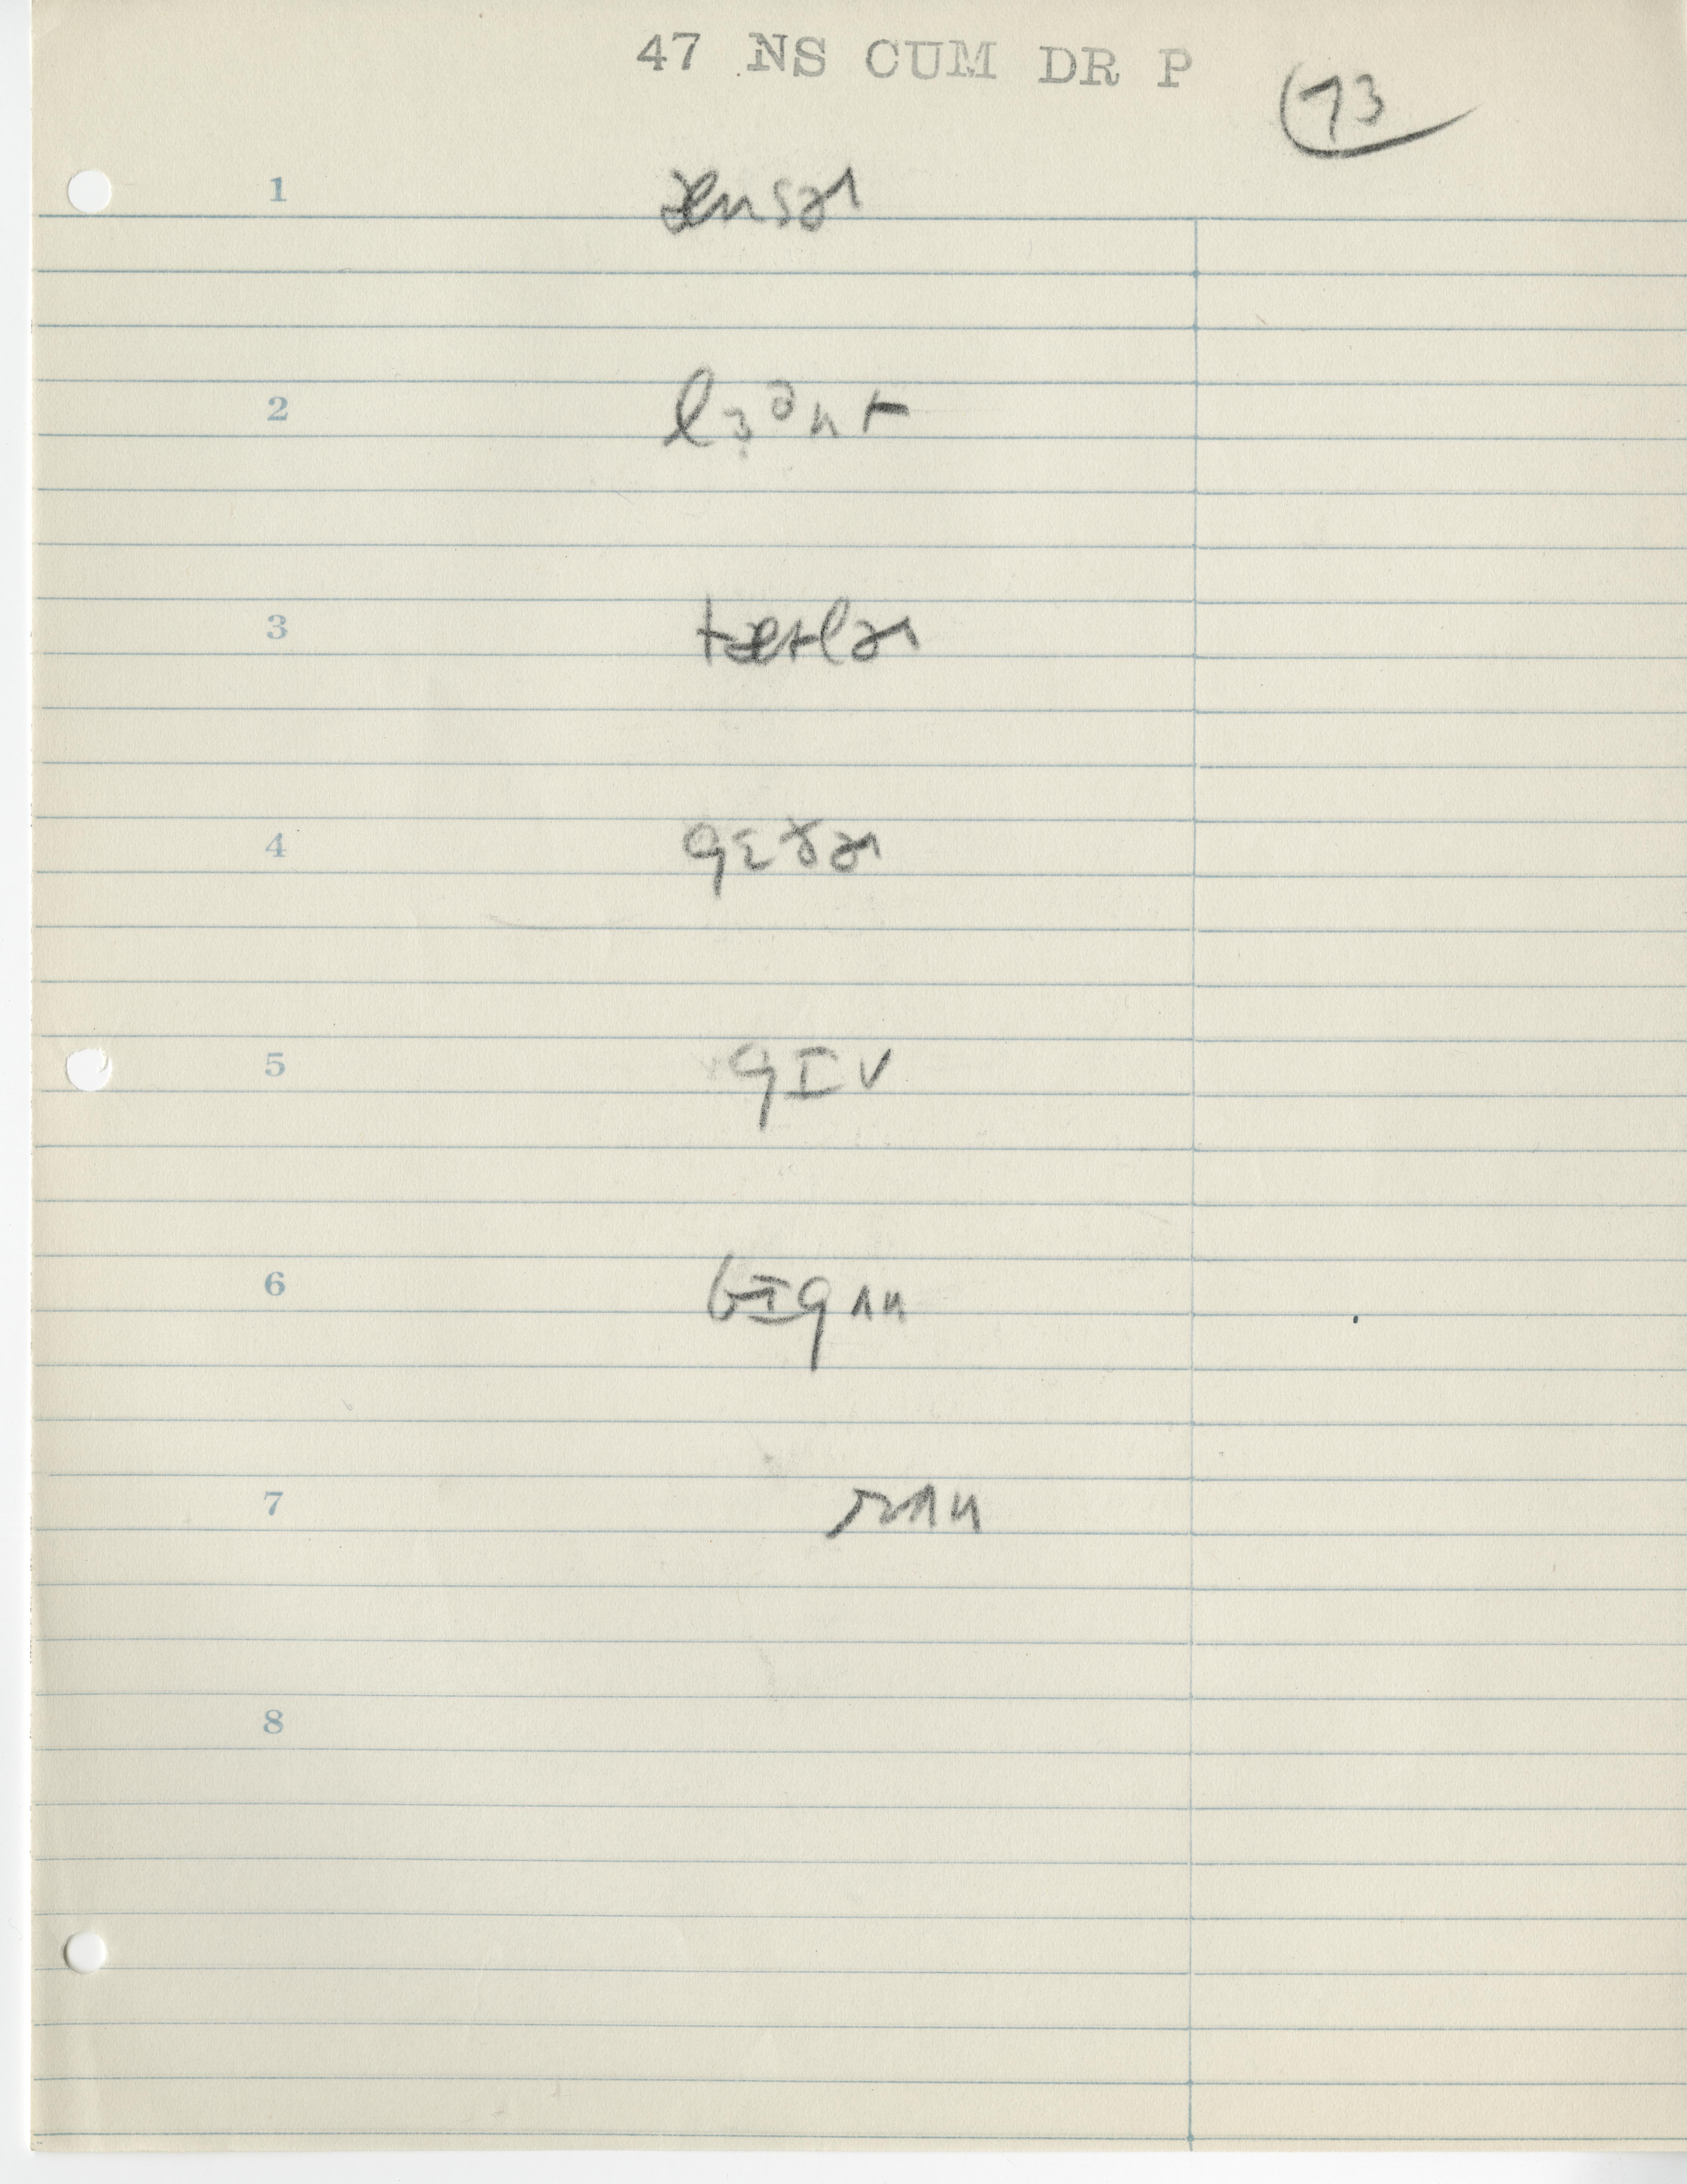 47 NS CUM DR P
73
1 ænsəɹ
2 lɜ̣ᵊnt
3 tætləɹ
4 gɛðəɹ
5 gɪv
6 bɪgʌn
7 rʌn
8